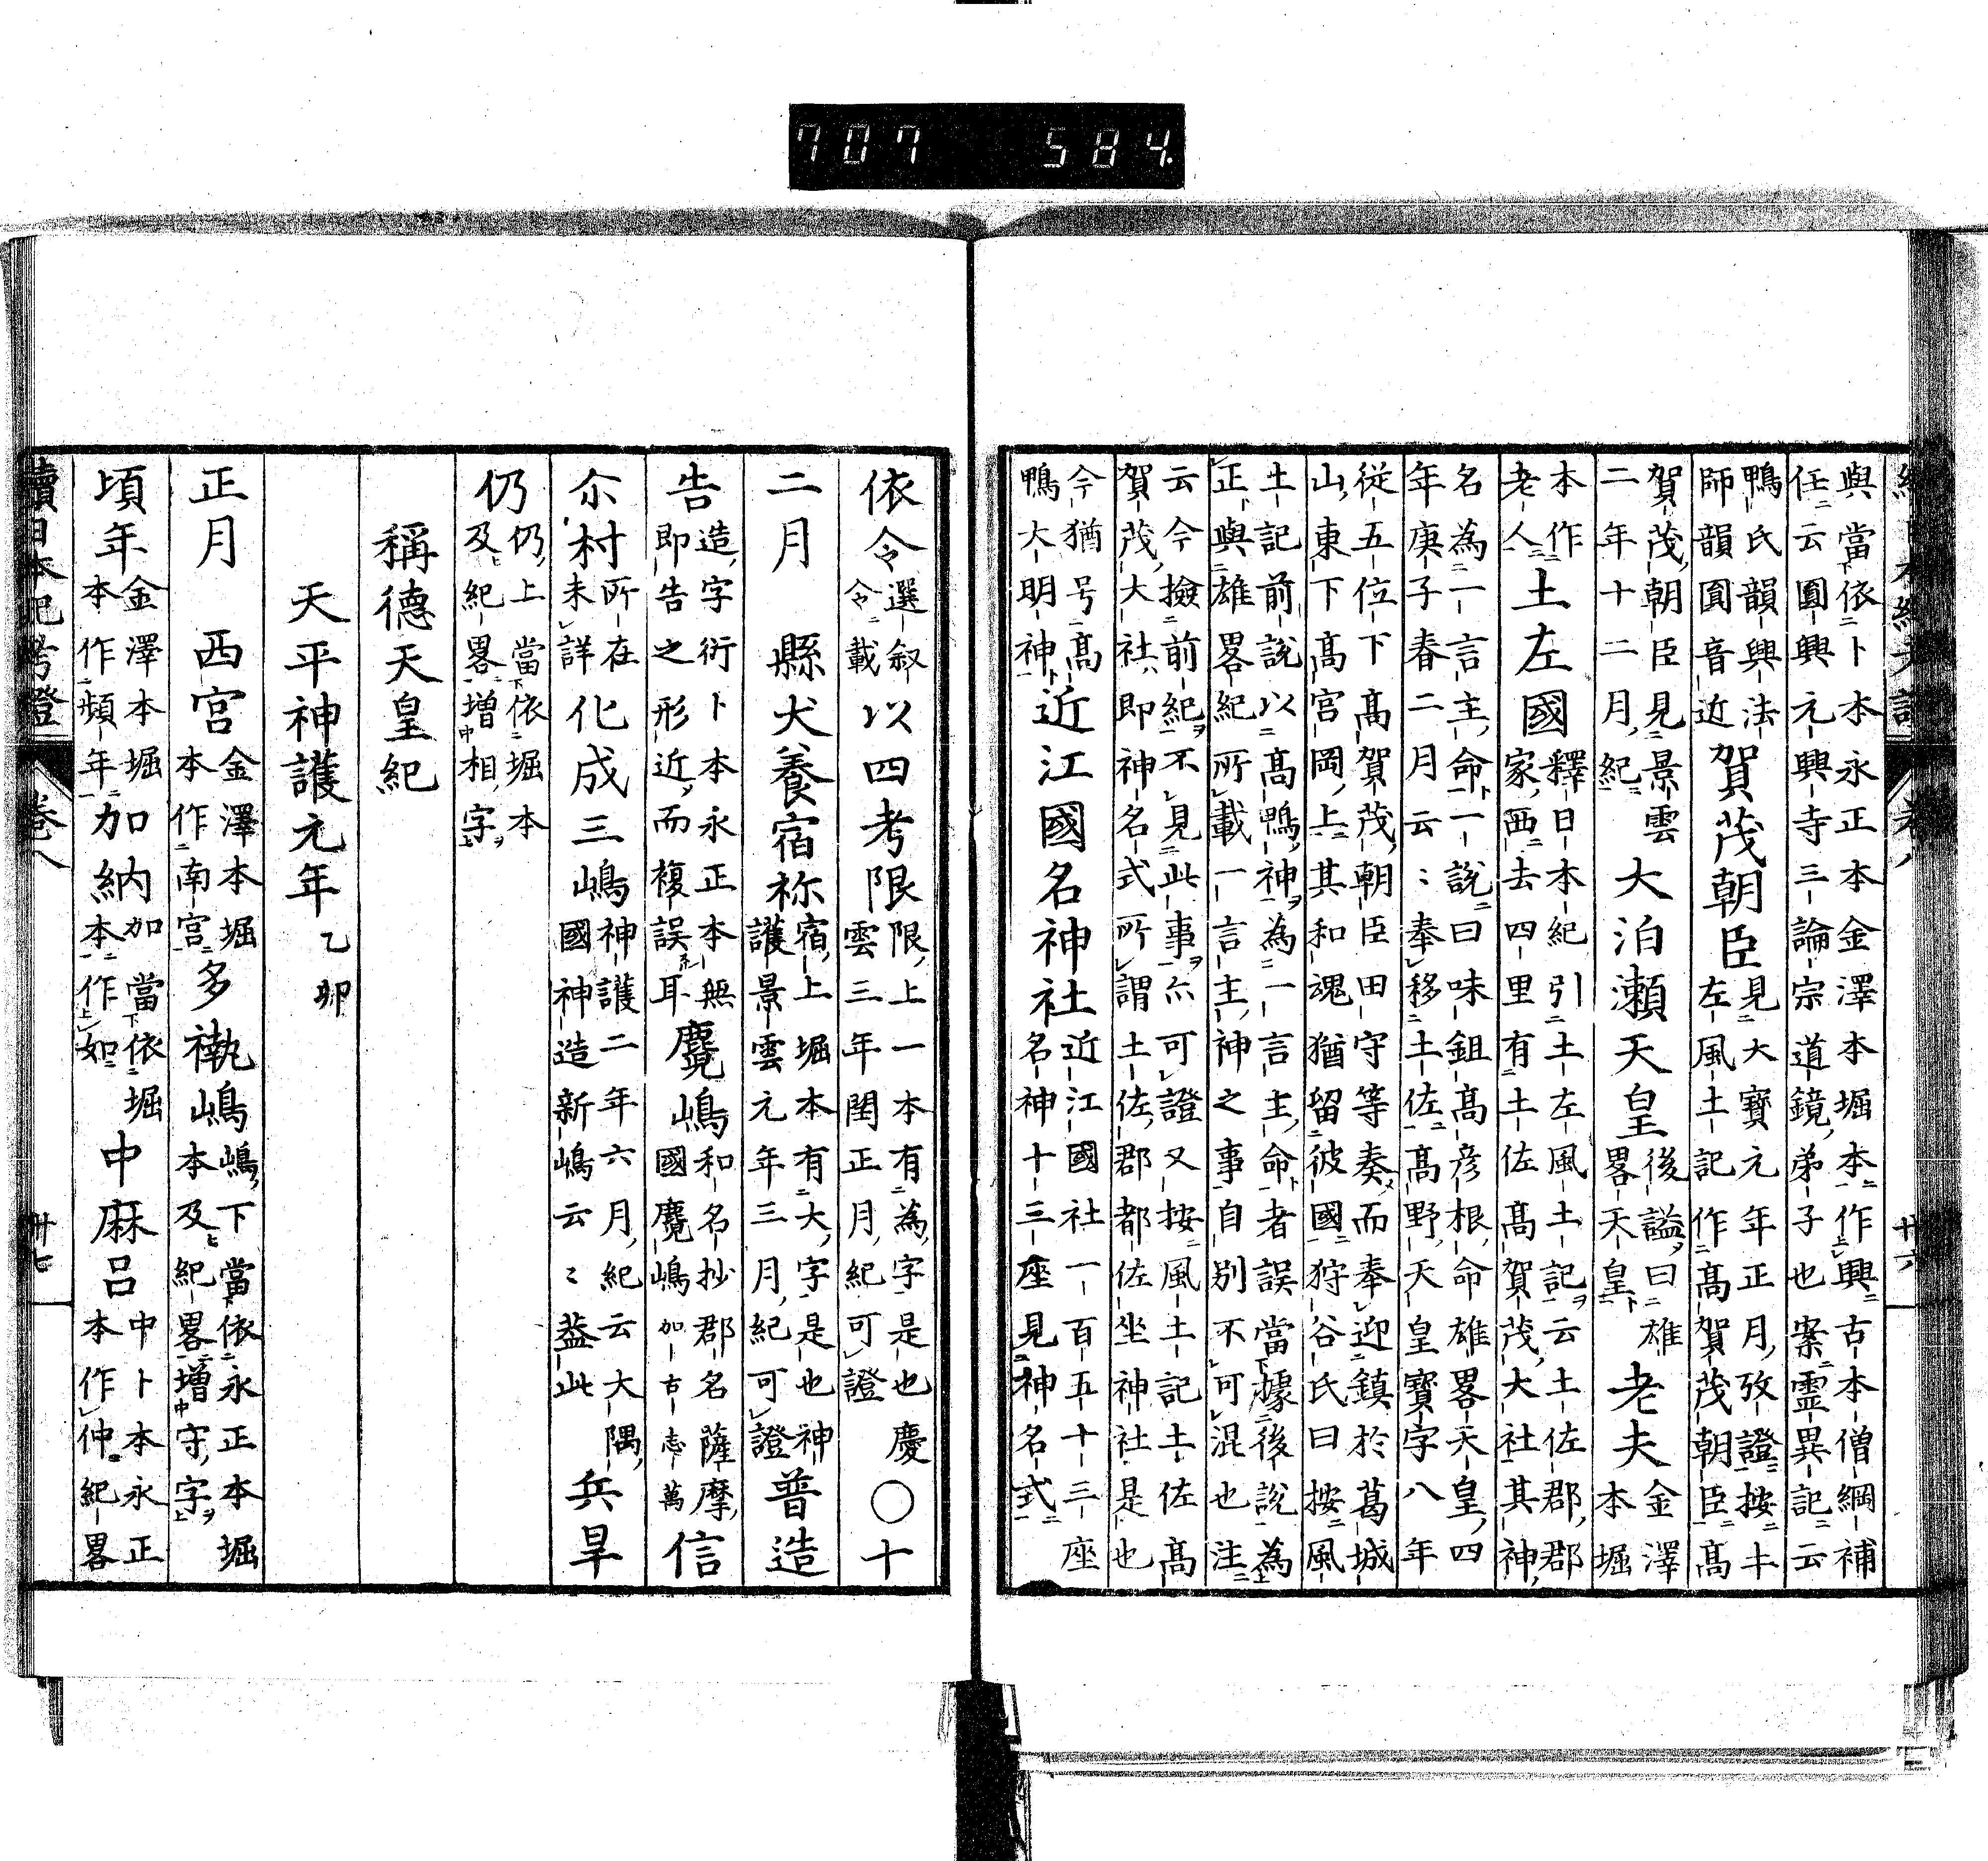 707 584
與當依卜本永正本金澤本堀本作興古本僧綱補
任云圓興元興寺三論宗道鏡弟子也案霊異記云
鴨氏韻興法
師韻圓音近賀茂朝臣見大寶元年正月攷證按土
左風土記作髙賀茂朝臣髙
賀茂朝臣見景雲
二年十二月紀大泊瀬天皇後謚曰雄
畧天皇老夫金澤
本堀
本作
老人土左國釋日本紀引土左風土記云土佐郡郡
家西去四里有土佐髙賀茂大社其神
名為一言主命一説曰味鉏髙彦根命雄畧天皇四
年庚子春二月云〻奉移土佐髙野天皇寶字八年
従五位下髙賀茂朝臣田守等奏而奉迎鎮於葛城
山東下髙宮岡上其和魂猶留彼國狩谷氏曰按風
土記前説以髙鴨神為一言主命者誤當據後説為
正與雄畧紀所載一言主神之事自別不可混也注
云今撿前紀不見此事亦可證又按風土記土佐髙
賀茂大社即神名式所謂土佐郡都佐坐神社是也
今猶号髙
鴨大明神近江國名神社近江國社一百五十三座
名神十三座見神名式
續日本紀考證 卷八 廿六
依令選叙
令載以四考限限上一本有為字是也慶
雲三年閏正月紀可證〇十
二月 縣犬養宿祢宿上堀本有大字是也神
護景雲元年三月紀可證普造
告造字衍卜本永正本無
即告之形近而複誤耳麑嶋和名抄郡名薩摩
國麑嶋加古志萬信
尒村所在
未詳化成三嶋神護二年六月紀云大隅
國神造新嶋云〻葢此兵旱
仍仍上當依堀本
及紀畧増相字
稱德天皇紀
天平神護元年乙卯
正月 西宮金澤本堀
本作南宮多褹嶋嶋下當依永正本堀
本及紀畧増守字
頃年金澤本堀
本作頻年加納加當依堀
本作如中麻呂中卜本永正
本作仲紀畧
續日本紀考證 卷八 廿七